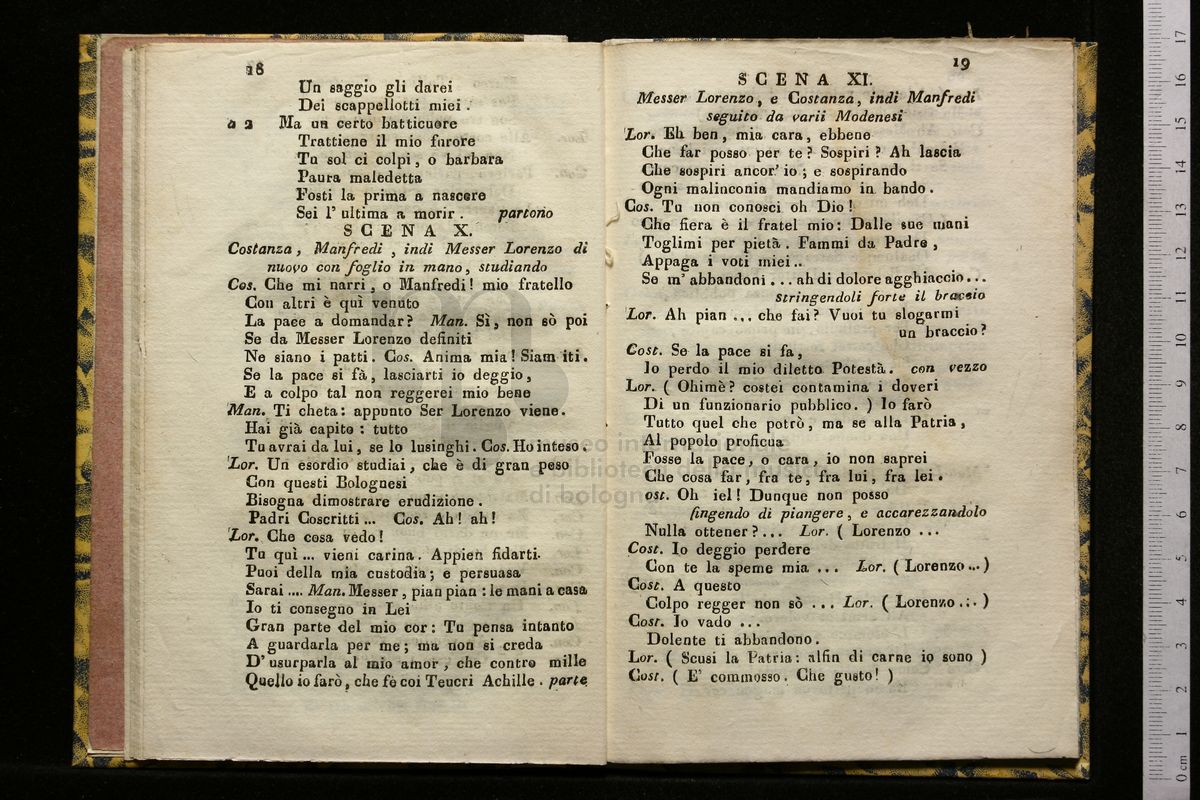 18
Un saggio gli darei
Dei scappellotti miei.
a 2 Ma un certo batticuore
Trattiene il mio furore
Tu sol ci colpi, o barbara
Paura maledetta
Fosti la prima a nascere
Sei l' ultima a morir. partono
SCENA X.
Costanza, Manfredi, indi Messer Lorenzo di
nuovo con foglio in mano, studiando
Cos. Che mi narri, o Manfredi! mio fratello
Con altri è quì venuto
La pace a domandar? Man. Sì, non sò poi
Se da Messer Lorenzo definiti
Ne siano i patti. Cos. Anima mia! Siam iti.
Se la pace si fà, lasciarti io deggio,
E a colpo tal non reggerei mio bene
Man. Ti cheta: appunto Ser Lorenzo viene.
Hai già capito: tutto
Tu avrai da lui, se lo lusinghi. Cos. Ho inteso.
Lor. Un esordio studiai, che è di gran peso
Con questi Bolognesi
Bisogna dimostrare erudizione.
Padri Coscritti... Cos. Ah! ah!
Lor. Che cosa vedo!
Tu quì... vieni carina. Appien fidarti
Puoi della mia custodia; e persuasa
Sarai.... Man. Messer, pian pian: le mani a casa
Io ti consegno in Lei
Gran parte del mio cor: Tu pensa intanto
A guardarla per me; ma non si creda
D' usurparla al mio amor, che contro mille
Quello io farò, che fè coi Teucri Achille. parte
19
SCENA XI.
Messer Lorenzo, e Costanza, indi Manfredi
seguito da varii Modenesi
Lor. Eh ben, mia cara, ebbene
Che far posso per te? Sospiri? Ah lascia
Che sospiri ancor' io; e sospirando
Ogni malinconia mandiamo in bando.
Cos. Tu non conosci oh Dio!
Che fiera è il fratel mio: Dalle sue mani
Toglimi per pietà. Fammi da Padre,
Appaga i voti miei..
Se m' abbandoni... ah di dolore agghiaccio...
stringendoli forte il braccio
Lor. Ah pian... che fai? Vuoi tu slogarmi
un braccio?
Cost. Se la pace si fa,
Io perdo il mio diletto Potestà. con vezzo
Lor. ( Ohimè? costei contamina i doveri
Di un funzionario pubblico. ) Io farò
Tutto quel che potrò, ma se alla Patria,
Al popolo proficua
Fosse la pace, o cara, io non saprei
Che cosa far, fra te, fra lui, fra lei.
ost. Oh iel! Dunque non posso
fingendo di piangere, e accarezzandolo
Nulla ottener?... Lor. ( Lorenzo ...
Cost. Io deggio perdere
Con te la speme mia ... Lor. ( Lorenzo...)
Cost. A questo
Colpo regger non sò ... Lor. ( Lorenzo...)
Cost. Io vado ...
Dolente ti abbandono.
Lor. ( Scusi la Patria: alfin di carne io sono )
Cost. ( E' commosso. Che gusto! )
di bologna
0 cm 1 2 3 4 5 6 7 8 9 10 11 12 13 14 15 16 17